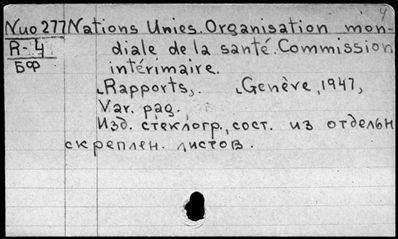 4
Nuo 277 Nations Unies. Organisation mon-
R-4 diale de la santé. Commission
БФ intérimaire.
Rapports,. Genève, 1947,
Var. pag.
Изд. стеклогр., сост. из отдельн
скреплен. листов.